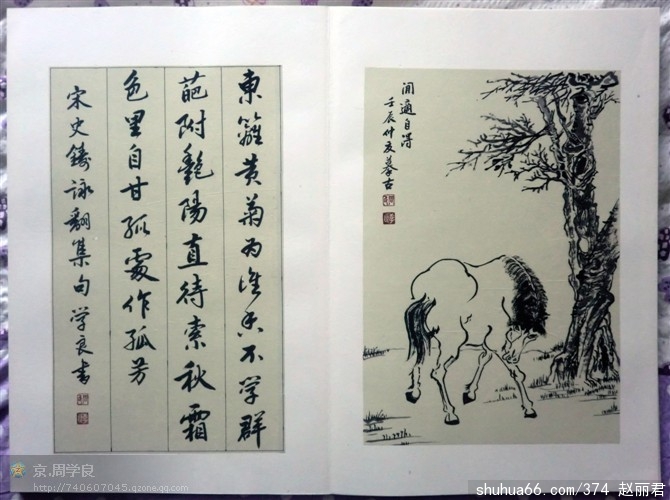 東籬黄菊为谁香不学群
葩附艷陽直待索秋霜
色里自甘孤處作孤芳
宋史鑄詠翻集句学良书
闲適自得
壬辰仲夏摹古
京.周学良
http://740607045.qzone.qq.com
shuhua66.com/374 赵丽君